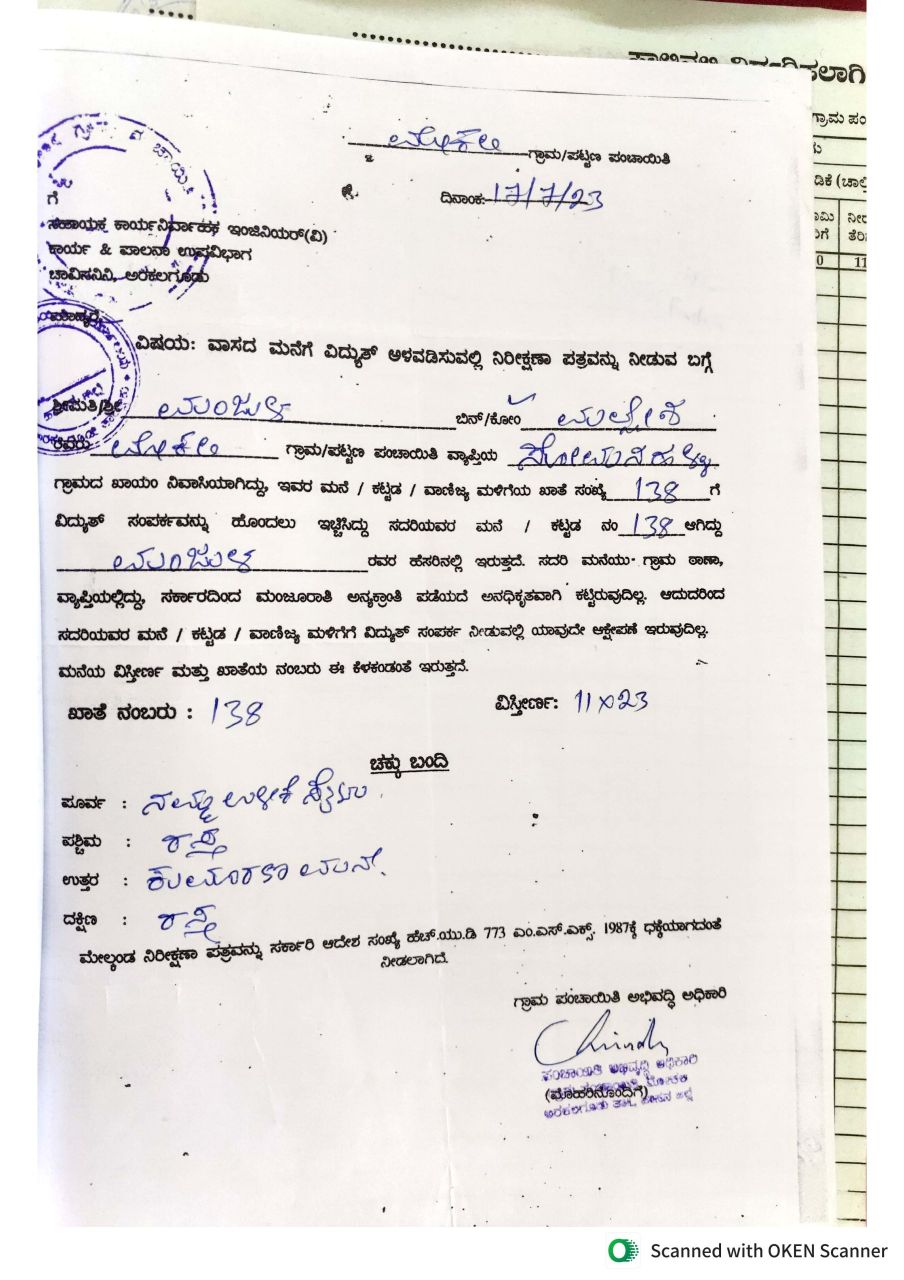 ಗ್ರಾಮ/ಪಟ್ಟಣ ಪಂಚಾಯಿತಿ
ದಿನಾಂಕ: 17/7/23
ಗೆ
ಸಹಾಯಕ ಕಾರ್ಯನಿರ್ವಾಹಕ ಇಂಜಿನಿಯರ್(ವಿ)
ಕಾರ್ಯ & ಪಾಲನಾ ಉಪವಿಭಾಗ
ಚಾವಿಸನಿನಿ, ಅರಕಲಗೂಡು
ಮಾನ್ಯರೆ,
ವಿಷಯ: ವಾಸದ ಮನೆಗೆ ವಿದ್ಯುತ್ ಅಳವಡಿಸುವಲ್ಲಿ ನಿರೀಕ್ಷಣಾ ಪತ್ರವನ್ನು ನೀಡುವ ಬಗ್ಗೆ
ಶ್ರೀಮತಿ/ಶ್ರೀ ಮಂಜುಳ ಬಿನ್/ಕೋಂ ಮಲ್ಲೇಶ
ರವರು ಗ್ರಾಮ/ಪಟ್ಟಣ ಪಂಚಾಯಿತಿ ವ್ಯಾಪ್ತಿಯ ಸೋಮನಹಳ್ಳಿ
ಗ್ರಾಮದ ಖಾಯಂ ನಿವಾಸಿಯಾಗಿದ್ದು, ಇವರ ಮನೆ / ಕಟ್ಟಡ / ವಾಣಿಜ್ಯ ಮಳಿಗೆಯ ಖಾತೆ ಸಂಖ್ಯೆ 138 ಗೆ
ವಿದ್ಯುತ್ ಸಂಪರ್ಕವನ್ನು ಹೊಂದಲು ಇಚ್ಚಿಸಿದ್ದು ಸದರಿಯವರ ಮನೆ / ಕಟ್ಟಡ ನಂ 138 ಆಗಿದ್ದು
ಮಂಜುಳ ರವರ ಹೆಸರಿನಲ್ಲಿ ಇರುತ್ತದೆ. ಸದರಿ ಮನೆಯು- ಗ್ರಾಮ ಠಾಣಾ,
ವ್ಯಾಪ್ತಿಯಲ್ಲಿದ್ದು, ಸರ್ಕಾರದಿಂದ ಮಂಜೂರಾತಿ ಅನ್ಯಕ್ರಾಂತಿ ಪಡೆಯದೆ ಅನಧಿಕೃತವಾಗಿ ಕಟ್ಟಿರುವುದಿಲ್ಲ. ಆದುದರಿಂದ
ಸದರಿಯವರ ಮನೆ / ಕಟ್ಟಡ / ವಾಣಿಜ್ಯ ಮಳಿಗೆಗೆ ವಿದ್ಯುತ್ ಸಂಪರ್ಕ ನೀಡುವಲ್ಲಿ ಯಾವುದೇ ಆಕ್ಷೇಪಣೆ ಇರುವುದಿಲ್ಲ.
ಮನೆಯ ವಿಸ್ತೀರ್ಣ ಮತ್ತು ಖಾತೆಯ ನಂಬರು ಈ ಕೆಳಕಂಡಂತೆ ಇರುತ್ತದೆ.
ಖಾತೆ ನಂಬರು : 138 ವಿಸ್ತೀರ್ಣ: 11×23
ಚಕ್ಕು ಬಂದಿ
ಪೂರ್ವ :
ಪಶ್ಚಿಮ : ರಸ್ತೆ
ಉತ್ತರ :
ದಕ್ಷಿಣ : ರಸ್ತೆ
ಮೇಲ್ಕಂಡ ನಿರೀಕ್ಷಣಾ ಪತ್ರವನ್ನು ಸರ್ಕಾರಿ ಆದೇಶ ಸಂಖ್ಯೆ ಹೆಚ್.ಯು.ಡಿ 773 ಎಂ.ಎಸ್.ಎಕ್ಸ್. 1987ಕ್ಕೆ ಧಕ್ಕೆಯಾಗದಂತೆ
ನೀಡಲಾಗಿದೆ.
ಗ್ರಾಮ ಪಂಚಾಯಿತಿ ಅಭಿವದ್ಧಿ ಅಧಿಕಾರಿ
ಪಂಚಾಯಿತಿ ಅಭಿವೃದ್ಧಿ ಅಧಿಕಾರಿ
(ಮೊಹರಿನೊಂದಿಗೆ)
Scanned with OKEN Scanner